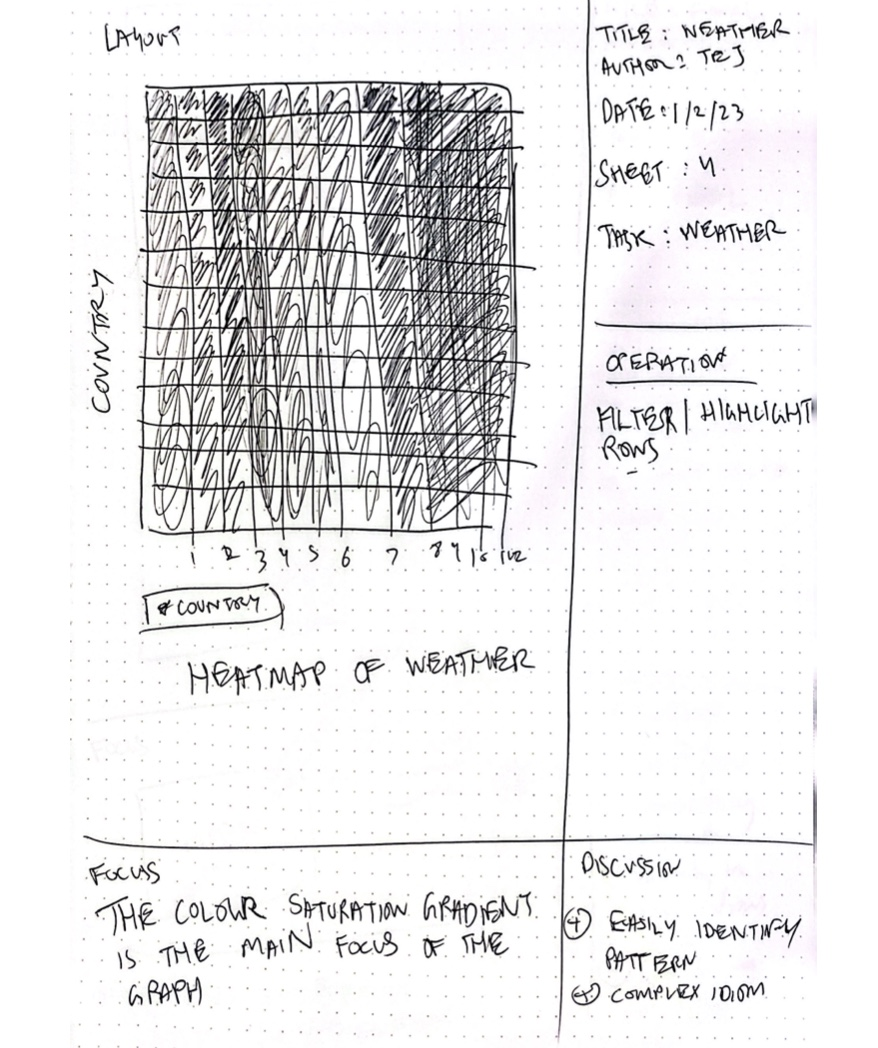 LAYOUT
COUNTRY
1 2 3 4 5 6 7 8 9 10 1 12
COUNTRY
HEATMAP OF WEATHER
TITLE : WEATHER
AUTHOR : TRJ
DATE : 1/2/23
SHEET : 4
TASK : WEATHER
OPERATION
FILTER / HIGHLIGHT
ROWS
FOCUS
THE COLOUR SATURATION GRADIENT
IS THE MAIN FOCUS OF THE
GRAPH
DISCUSSION
+ EASILY IDENTIFY
PATTERN
+ COMPLEX IDIOM